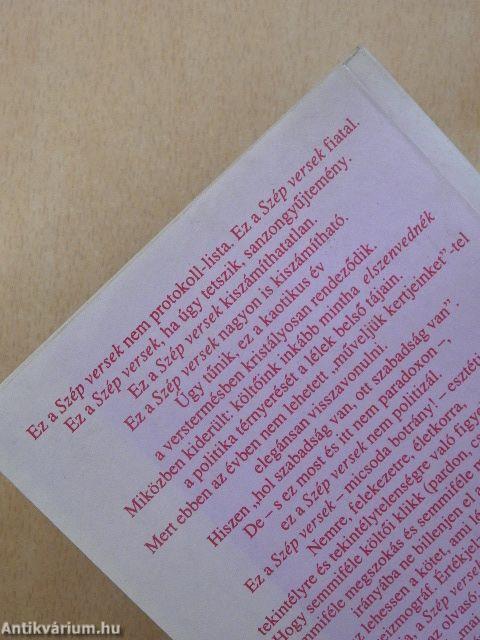 Ez a Szép versek nem protokoll-lista. Ez a Szép versek fiatal.
Ez a Szép versek, ha úgy tetszik, sanzongyűjtemény.
Ez a Szép versek kiszámíthatatlan.
Ez a Szép versek nagyon is kiszámítható.
Úgy tűnik, ez a kaotikus év
a verstermésben kristályosan rendeződik.
Miközben kiderült: költőink inkább mintha elszenvednék
a politika térnyerését a lélek belső tájain.
Mert ebben az évben nem lehetett „műveljük kertjeinket"-tel
elegánsan visszavonulni.
Hiszen „hol szabadság van, ott szabadság van".
De – s ez most és itt nem paradoxon –,
ez a Szép versek nem politizál.
Ez a Szép versek – micsoda botrány! –
Nemre, felekezetre, életkorra,
tekintélyre és tekintélytelenségre való
Hogy semmiféle költői klikk (pardon,
megszokás és semmiféle
irányába ne billenjen el a
lehessen a kötet, ami
Értékje
a Szép verse
olvasó
Antikvárium.hu